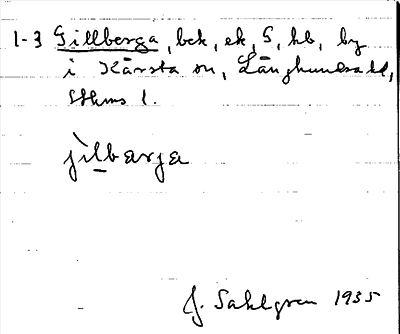 1-3 Gillberga, bck, ek, S, hb, by
i Kårsta sn, Långhundra hd,
Sthms l.
jìlbarja
J. Sahlgren 1935